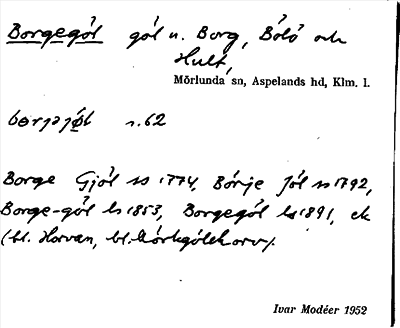 Borgegöl göl n. Borg, Bölö och
Hult,
Mörlunda sn, Aspelands hd, Klm. l.
s. 62
Borge Gjöl ss 1774, Börje Jöl ss 1792,
Borge-göl ls 1853, Borgegöl ls 1891, ek
(bl. Horvan, bl.
Ivar Modéer 1952